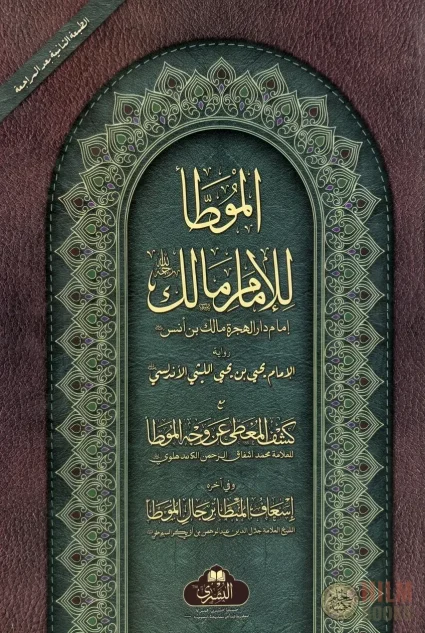 الطبعة الثانية بعد المراجعة
الموطأ
للإمام مالك
إمام دار الهجرة مالك بن أنس
رواية
الإمام يحيى بن يحيى الليثي الأندلسي
مع
كشف المغطى عن وجه الموطا
للعلامة محمد أشفاق الرحمن الكاندهلوي
وفي آخره
إسعاف المبطأ برجال الموطأ
للشيخ العلامة جلال الدين عبد الرحمن بن أبي بكر السيوطي
البشرى
BOOKS